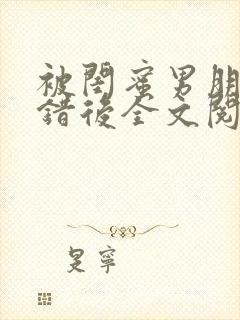 被閨蜜男朋
錯後全文閱
旻寧